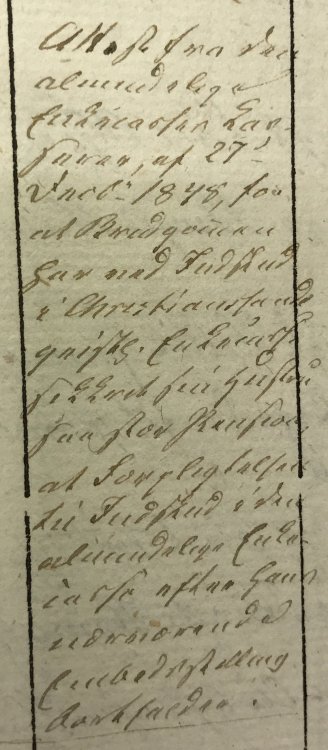 Attest fra den
almindelige
Enkecasses Cas-
serer, af 27de
Decbr 1848, for
at Brudgommen
har ved Indskud
i Christianssands
geistl. Enkecasse
sikkret sin Hustru
saa stor Pension,
at Forpligtelsen
til Indskud i den
almindelige Enke-
casse efter hans
nærværende
Embedsstilling
bortfalder.